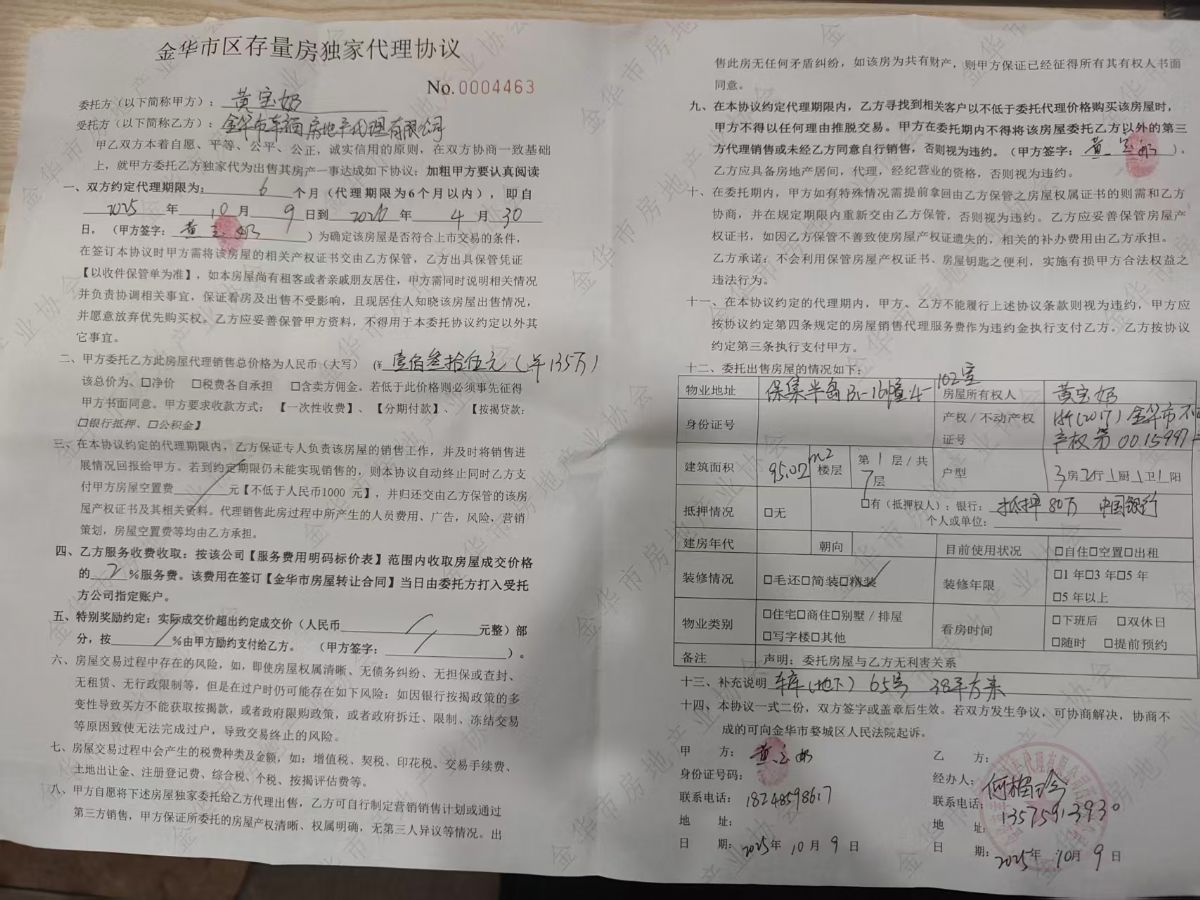 金华市区存量房独家代理协议
No.0004463
委托方（以下简称甲方）：黄宝奶
受托方（以下简称乙方）：金华市车辆房地产代理有限公司
甲乙双方本着自愿、平等、公平、公正，诚实信用的原则，在双方协商一致基础
上，就甲方委托乙方独家代为出售其房产一事达成如下协议：加粗甲方要认真阅读
一、双方约定代理期限为：6个月（代理期限为6个月以内），即自
2025年10月9日到2026年4月30
日，（甲方签字：黄宝奶）为确定该房屋是否符合上市交易的条件，
在签订本协议时甲方需将该房屋的相关产权证书交由乙方保管，乙方出具保管凭证
【以收件保管单为准】，如本房屋尚有租客或者亲戚朋友居住，甲方需同时说明相关情况
并负责协调相关事宜，保证看房及出售不受影响，且现居住人知晓该房屋出售情况，
并愿意放弃优先购买权。乙方应妥善保管甲方资料，不得用于本委托协议约定以外其
它事宜。
二、甲方委托乙方此房屋代理销售总价格为人民币（大写）（¥壹佰叁拾伍元（羊135万）
该总价为、□净价 □税费各自承担 □含卖方佣金。若低于此价格则必须事先征得
甲方书面同意。甲方要求收款方式：【一次性收费】、【分期付款】、【按揭贷款：
□银行抵押、□公积金】
三、在本协议约定的代理期限内，乙方保证专人负责该房屋的销售工作，并及时将销售进
展情况回报给甲方。若到约定期限仍未能实现销售的，则本协议自动终止同时乙方支
付甲方房屋空置费／元【不低于人民币1000 元】，并归还交由乙方保管的该房
屋产权证书及其相关资料。代理销售此房过程中所产生的人员费用、广告，风险，营销
策划，房屋空置费等均由乙方承担。
四、乙方服务收费收取：按该公司【服务费用明码标价表】范围内收取房屋成交价格
的2%服务费。该费用在签订【金华市房屋转让合同】当日由委托方打入受托
方公司指定账户。
五、特别奖励约定：实际成交价超出约定成交价（人民币／元整）部
分，按／%由甲方励约支付给乙方。（甲方签字：／）。
六、房屋交易过程中存在的风险，如，即使房屋权属清晰、无债务纠纷、无担保或查封、
无租赁、无行政限制等，但是在过户时仍可能存在如下风险：如因银行按揭政策的多
变性导致买方不能获取按揭款，或者政府限购政策，或者政府拆迁、限制、冻结交易
等原因致使无法完成过户，导致交易终止的风险。
七、房屋交易过程中会产生的税费种类及金额，如：增值税、契税、印花税、交易手续费、
土地出让金、注册登记费、综合税、个税、按揭评估费等。
八、甲方自愿将下述房屋独家委托给乙方代理出售，乙方可自行制定营销销售计划或通过
第三方销售，甲方保证所委托的房屋产权清晰、权属明确，无第三人异议等情况。出
售此房无任何矛盾纠纷，如该房为共有财产，则甲方保证已经征得所有其有权人书面
同意。
九、在本协议约定代理期限内，乙方寻找到相关客户以不低于委托代理价格购买该房屋时，
甲方不得以任何理由推脱交易。甲方在委托期内不得将该房屋委托乙方以外的第三
方代理销售或未经乙方同意自行销售，否则视为违约。（甲方签字：黄宝奶）。
乙方应具备房地产居间，代理，经纪营业的资格，否则视为违约。
十、在委托期内，甲方如有特殊情况需提前拿回由乙方保管之房屋权属证书的则需和乙方
协商，并在规定期限内重新交由乙方保管，否则视为违约。乙方应妥善保管房屋产
权证书，如因乙方保管不善致使房屋产权证遗失的，相关的补办费用由乙方承担。
乙方承诺：不会利用保管房屋产权证书、房屋钥匙之便利，实施有损甲方合法权益之
违法行为。
十一、在本协议约定的代理期内，甲方、乙方不能履行上述协议条款则视为违约，甲方应
按协议约定第四条规定的房屋销售代理服务费作为违约金执行支付乙方。乙方按协议
约定第三条执行支付甲方。
十二、委托出售房屋的情况如下：
物业地址 保集半岛B1-16幢4-102室 房屋所有权人 黄宝奶
身份证号 产权/不动产权证号 浙(2017)金华市不动产权第0015997号
建筑面积 95.02m2 楼层 第1层/共7层 户型 3房2厅1厨1卫1阳
抵押情况 □无 □有（抵押权人）：银行：抵押80万 中国银行
个人或单位：
建房年代 朝向 目前使用状况 □自住□空置□出租
装修情况 □毛还□简装□精装 装修年限 □1年□3年□5年
□5年以上
物业类别 □住宅□商住□别墅/排屋 看房时间 □下班后 □双休日
□写字楼□其他 □随时 □提前预约
备注 声明：委托房屋与乙方无利害关系
十三、补充说明 车库(地下) 65号 38平方米
十四、本协议一式二份，双方签字或盖章后生效。若双方发生争议，可协商解决，协商不
成的可向金华市婺城区人民法院起诉。
甲 方：黄宝奶
身份证号码：
联系电话：18248598617
地 址：
日 期：2025年10月9日
乙 方：
经办人：
联系电话：13575913930
地 址：
日 期：2025年10月9日